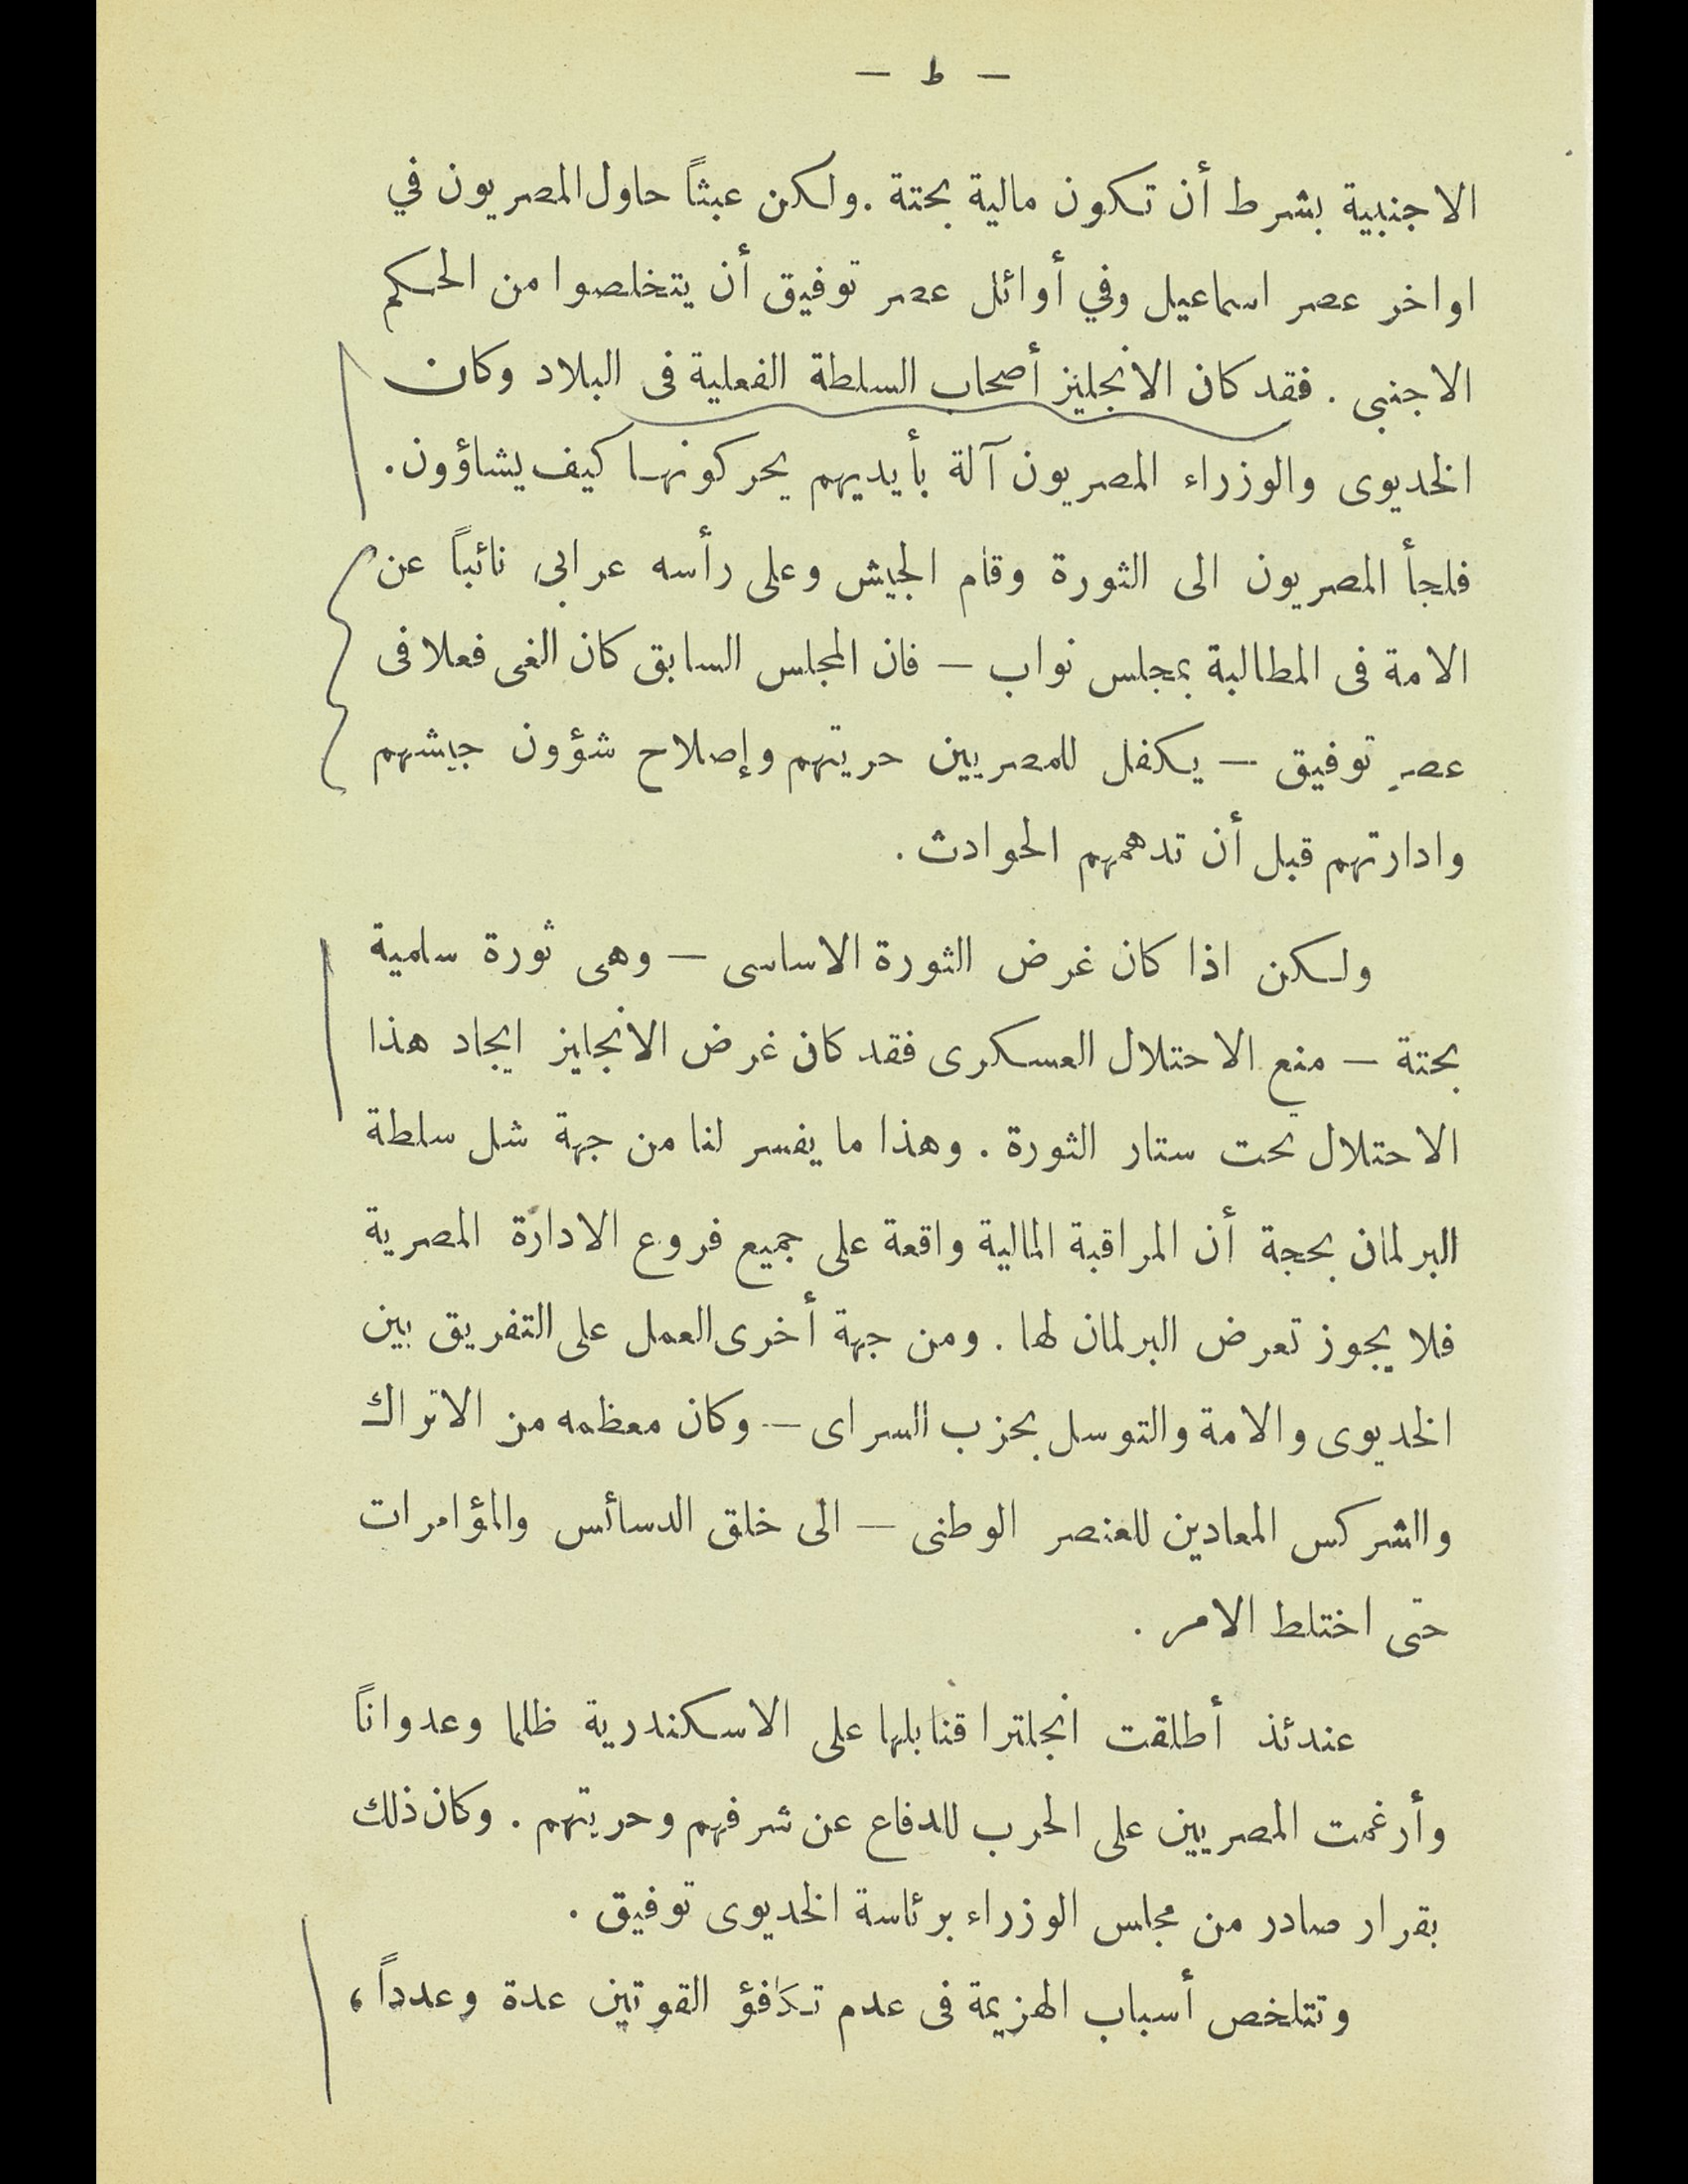 — ط —
الاجنبية بشرط أن تكون مالية بحتة . ولكن عبثاً حاول المصريون في
اواخر عصر اسماعيل وفي أوائل عصر توفيق أن يتخلصوا من الحكم
الاجنبى . فقد كان الانجليز أصحاب السلطة الفعلية فى البلاد وكان
الخديوى والوزراء المصريون آلة بأيديهم يحركونها كيف يشاؤون .
فلجأ المصريون الى الثورة وقام الجيش وعلى رأسه عرابى نائباً عن
الامة فى المطالبة بمجلس نواب — فان المجلس السابق كان الغى فعلا فى
عصر توفيق — يكفل للمصريين حريتهم وإصلاح شؤون جيشهم
وادارتهم قبل أن تدهمهم الحوادث .
ولكن اذا كان غرض الثورة الاساسى — وهى ثورة سلمية
بحتة — منع الاحتلال العسكرى فقد كان غرض الانجليز ايجاد هذا
الاحتلال تحت ستار الثورة . وهذا ما يفسر لنا من جهة شل سلطة
البرلمان بحجة أن المراقبة المالية واقعة على جميع فروع الادارة المصرية
فلا يجوز تعرض البرلمان لها . ومن جهة أخرى العمل على التفريق بين
الخديوى والامة والتوسل بحزب السراى — وكان معظمه من الاتراك
والشركس المعادين للعنصر الوطنى — الى خلق الدسائس والمؤامرات
حتى اختلط الامر .
عندئذ أطلقت انجلترا قنابلها على الاسكندرية ظلما وعدواناً
وأرغمت المصريين على الحرب للدفاع عن شرفهم وحريتهم . وكان ذلك
بقرار صادر من مجلس الوزراء برئاسة الخديوى توفيق .
وتتلخص أسباب الهزيمة فى عدم تكافؤ القوتين عدة وعدداً ،